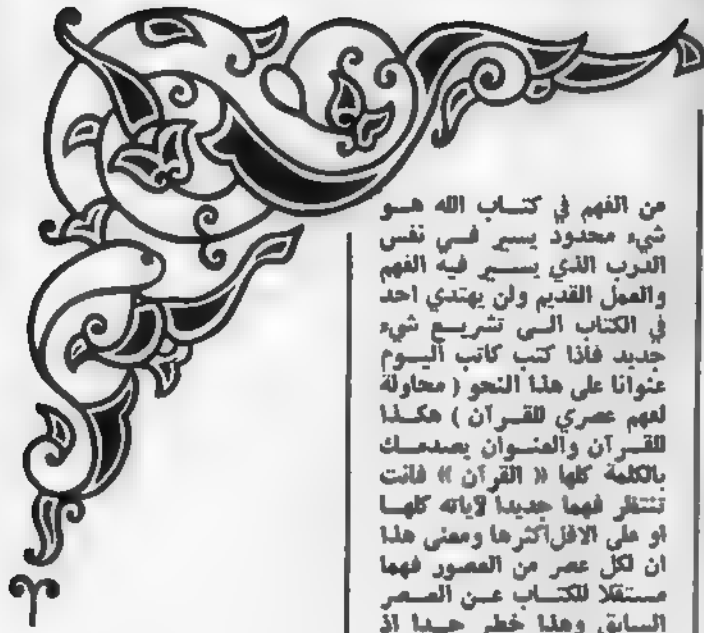 من الفهم في كتــاب الله هــو
شيء محدود يسير فــي نفس
الدرب الذي يســير فيه الفهم
والعمل القديم ولن يهتدي احد
في الكتاب الــى تشريــع شيء
جديد فاذا كتب كاتب اليــوم
عنوانا على هذا النحو ( محاولة
لفهم عصري للقــرآن ) هكــذا
للقــرآن والعنــوان يصدمــك
بالكلمة كلها (( القرآن )) فانت
تنتظر فهما جديدا لآياته كلهــا
او على الاقل اكثرها ومعنى هذا
ان لكل عصر من العصور فهما
مستقلا للكتــاب عــن العــصر
السابق وهذا خطر جــدا اذ